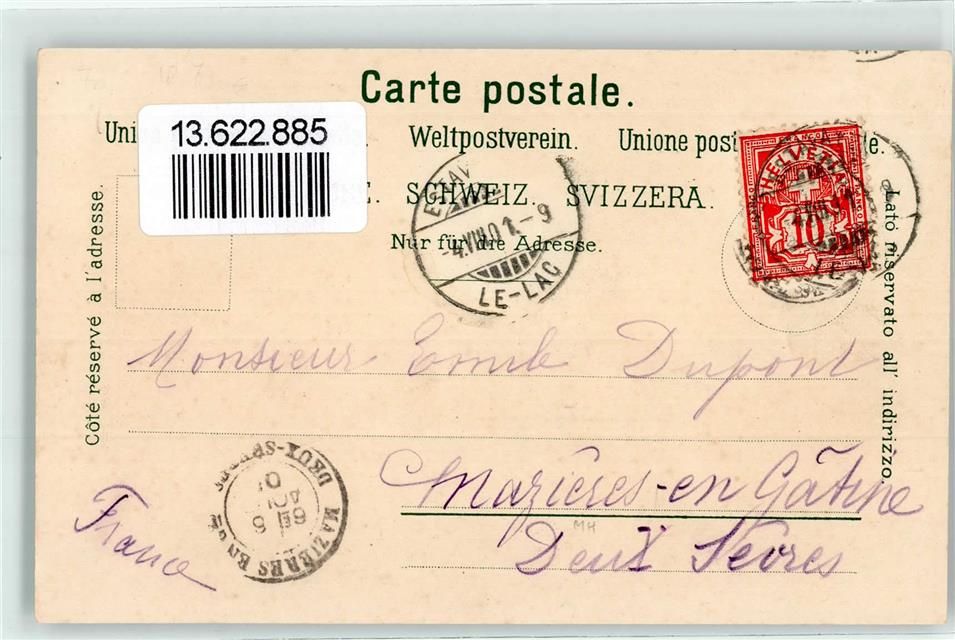 Carte postale.
13.622.885
Uni Weltpostverein. Unione post le.
E. SCHWEIZ. SVIZZERA.
Nur für die Adresse.
Côté réservé à l'adresse.
Lato riservato all' indirizzo.
ESTAV
-4.VIII.01.-9
LE-LAC
FRANCO
HELVETIA
10
Monsieur Emile Dupont
Mazières-en Gâtine
MH
Deux Sèvres
France
MAZIERES EN GNE
6E
6
AOUT
01
DEUX-SEVRES